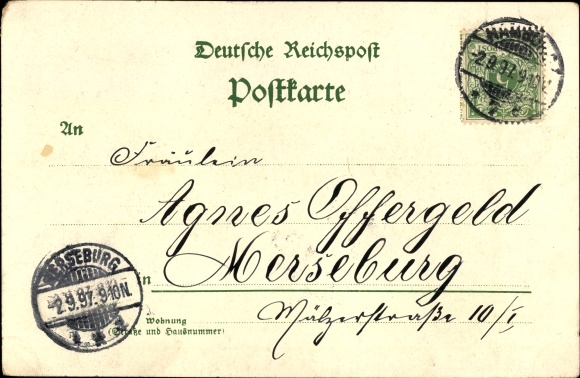 Deutsche Reichspost
Postkarte
2.9.97. 9-10N.
An
Fräulein
Agnes Offergeld
in Merseburg
MERSEBURG
2.9.97. 9-10N.
Mälzerstraße 10/I
Wohnung
(Straße und Hausnummer)